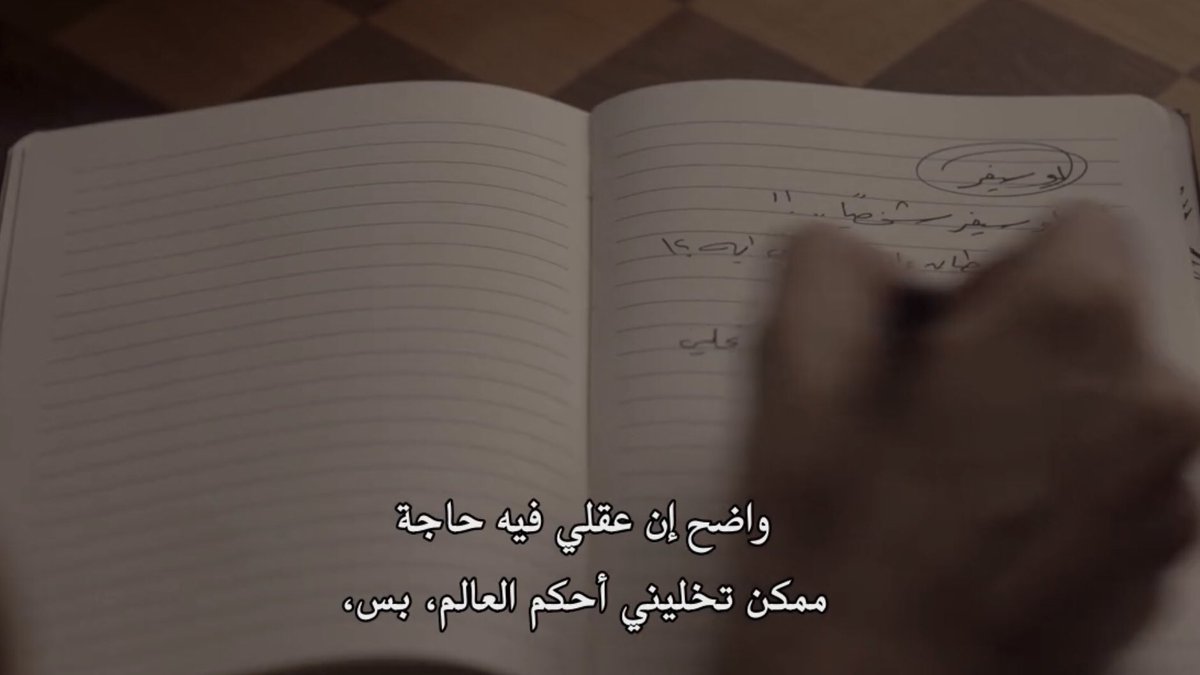 لوسيفر
لوسيفر شخصيًا..!!
ايه ؟!
واضح إن عقلي فيه حاجة
ممكن تخليني أحكم العالم، بس،